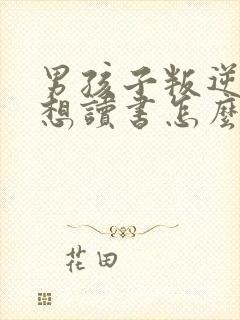 男孩子叛逆
想讀書怎麼
花田